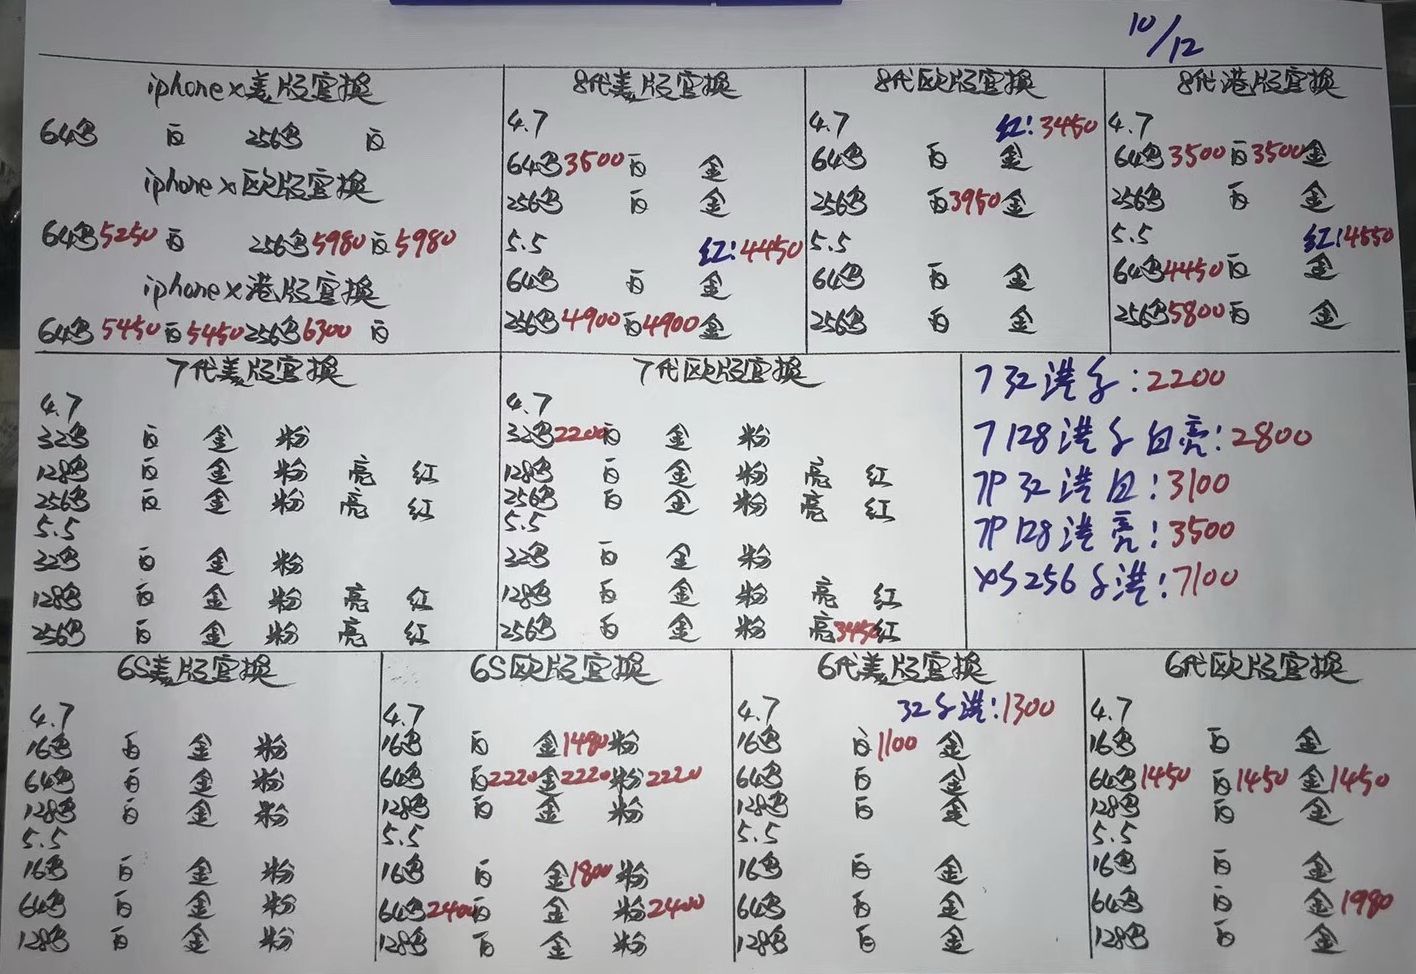 10/12
iphone x美版官换
64黑 白 256黑 白
iphone x欧版官换
64黑5250 白 256黑5980 白5980
iphone x港版官换
64黑5450 白5450 256黑6300 白
8代美版官换
4.7
64黑3500白 金
256黑 白 金
5.5 红:4450
64黑 白 金
256黑4900白4900金
8代欧版官换
4.7 红:3450
64黑 白 金
256黑 白3950金
5.5
64黑 白 金
256黑 白 金
8代港版官换
4.7
64黑3500白3500金
256黑 白 金
5.5 红:4550
64黑4450白 金
256黑5800白 金
7代美版官换
4.7
32黑 白 金 粉
128黑 白 金 粉 亮 红
256黑 白 金 粉 亮 红
5.5
32黑 白 金 粉
128黑 白 金 粉 亮 红
256黑 白 金 粉 亮 红
7代欧版官换
4.7
32黑2200白 金 粉
128黑 白 金 粉 亮 红
256黑 白 金 粉 亮 红
5.5
32黑 白 金 粉
128黑 白 金 粉 亮 红
256黑 白 金 粉 亮3450红
7 32港 :2200
7 128港 白亮:2800
7P 32港白:3100
7P 128港亮:3500
XS 256 港:7100
6S美版官换
4.7
16黑 白 金 粉
64黑 白 金 粉
128黑 白 金 粉
5.5
16黑 白 金 粉
64黑 白 金 粉
128黑 白 金 粉
6S欧版官换
4.7
16黑 白 金1480粉
64黑 白2220金2220粉2220
128黑 白 金 粉
5.5
16黑 白 金1800粉
64黑2400白 金 粉2400
128黑 白 金 粉
6代美版官换
4.7 32 港:1300
16黑 白1100 金
64黑 白 金
128黑 白 金
5.5
16黑 白 金
64黑 白 金
128黑 白 金
6代欧版官换
4.7
16黑 白 金
64黑1450 白1450金1450
128黑 白 金
5.5
16黑 白 金
64黑 白 金1980
128黑 白 金